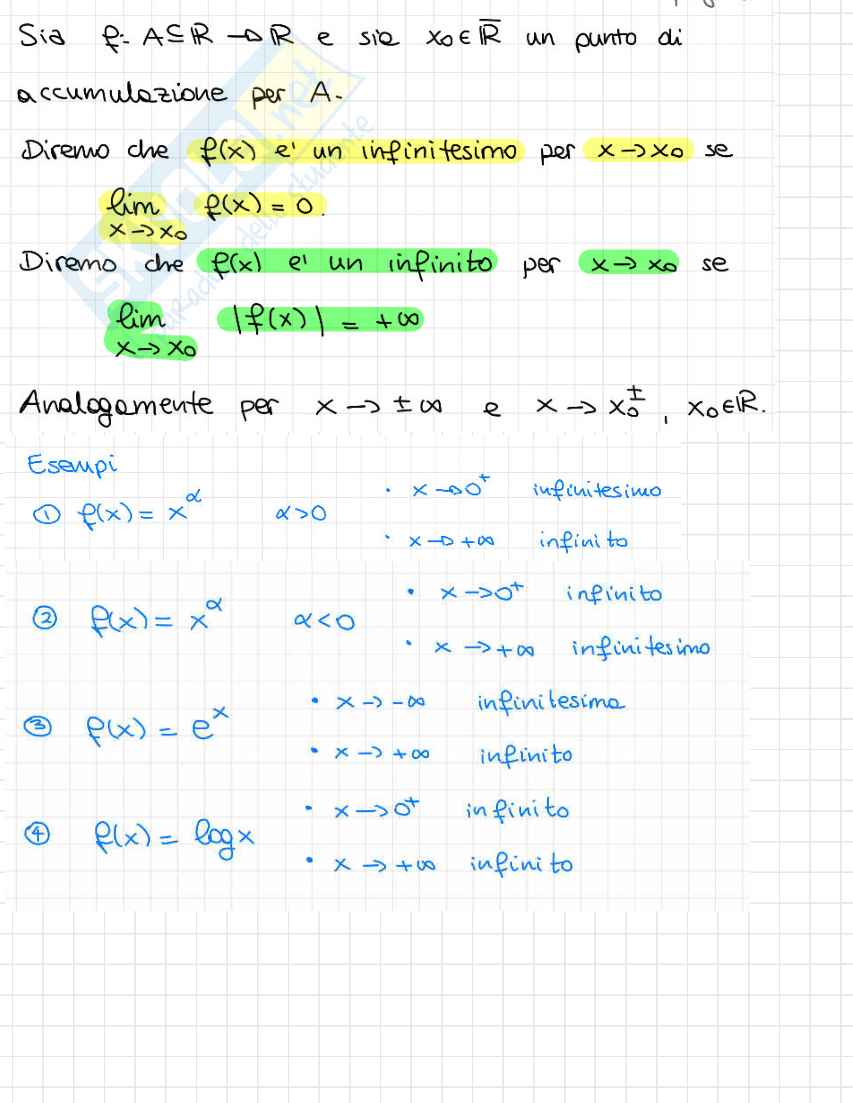 Sia f: A⊆ℝ → ℝ e sia x₀ ∈ ℝ̅ un punto di
accumulazione per A.
Diremo che f(x) e' un infinitesimo per x → x₀ se
lim f(x) = 0.
x → x₀
Diremo che f(x) e' un infinito per x → x₀ se
lim |f(x)| = +∞
x → x₀
Analogamente per x → ±∞ e x → x₀^±, x₀∈ℝ.
Esempi
① f(x) = x^α α>0 · x → 0⁺ infinitesimo
· x → +∞ infinito
② f(x) = x^α α<0 · x → 0⁺ infinito
· x → +∞ infinitesimo
③ f(x) = e^x · x → -∞ infinitesimo
· x → +∞ infinito
④ f(x) = log x · x → 0⁺ infinito
· x → +∞ infinito